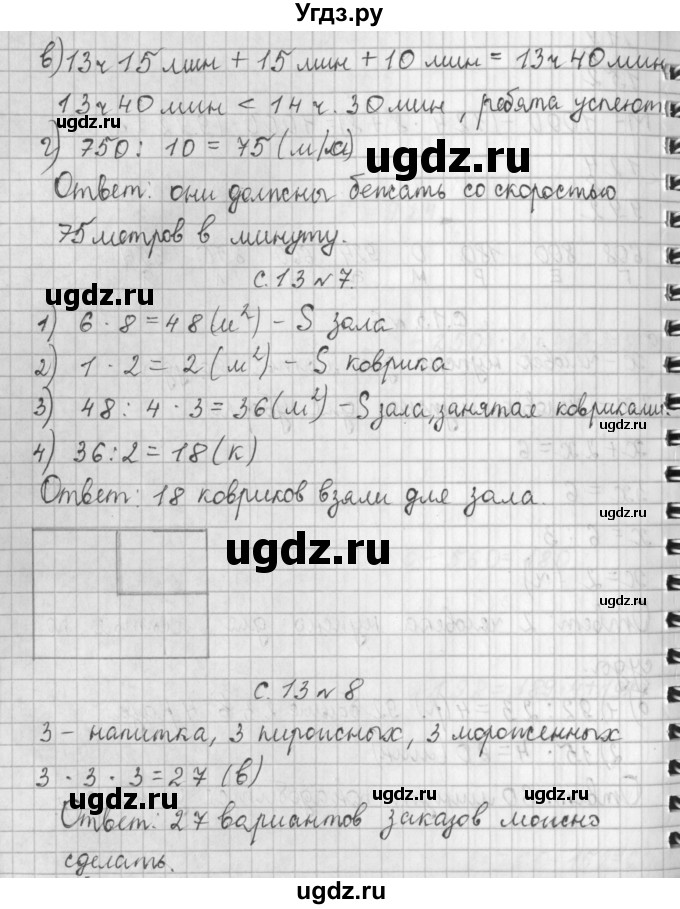 Угдз.ру
в) 13ч 15 мин + 15 мин + 10 мин = 13ч 40 мин
13ч 40 мин < 14 ч. 30 мин, ребята успеют
ugdz.ru
ugdz.ru
г) 750 : 10 = 75 (м/м)
ugdz.ru
Ответ: они должны бежать со скоростью
ugdz.ru
75 метров в минуту.
с. 13 № 7.
ugdz.ru
1) 6 · 8 = 48 (м²) – S зала
ugdz.ru
2) 1 · 2 = 2 (м²) – S коврика
3) 48 : 4 · 3 = 36 (м²) – S зала, занятая ковриками.
4) 36 : 2 = 18 (к)
ugdz.ru
Ответ: 18 ковриков взяли для зала.
ugdz.ru
ugdz.ru
ugdz.ru
с. 13 № 8
3 – напитка, 3 пироженных, 3 мороженных
3 · 3 · 3 = 27 (в)
ugdz.ru
ugdz.ru
ugdz.ru
Ответ: 27 вариантов заказов можно
сделать.
ugdz.ru